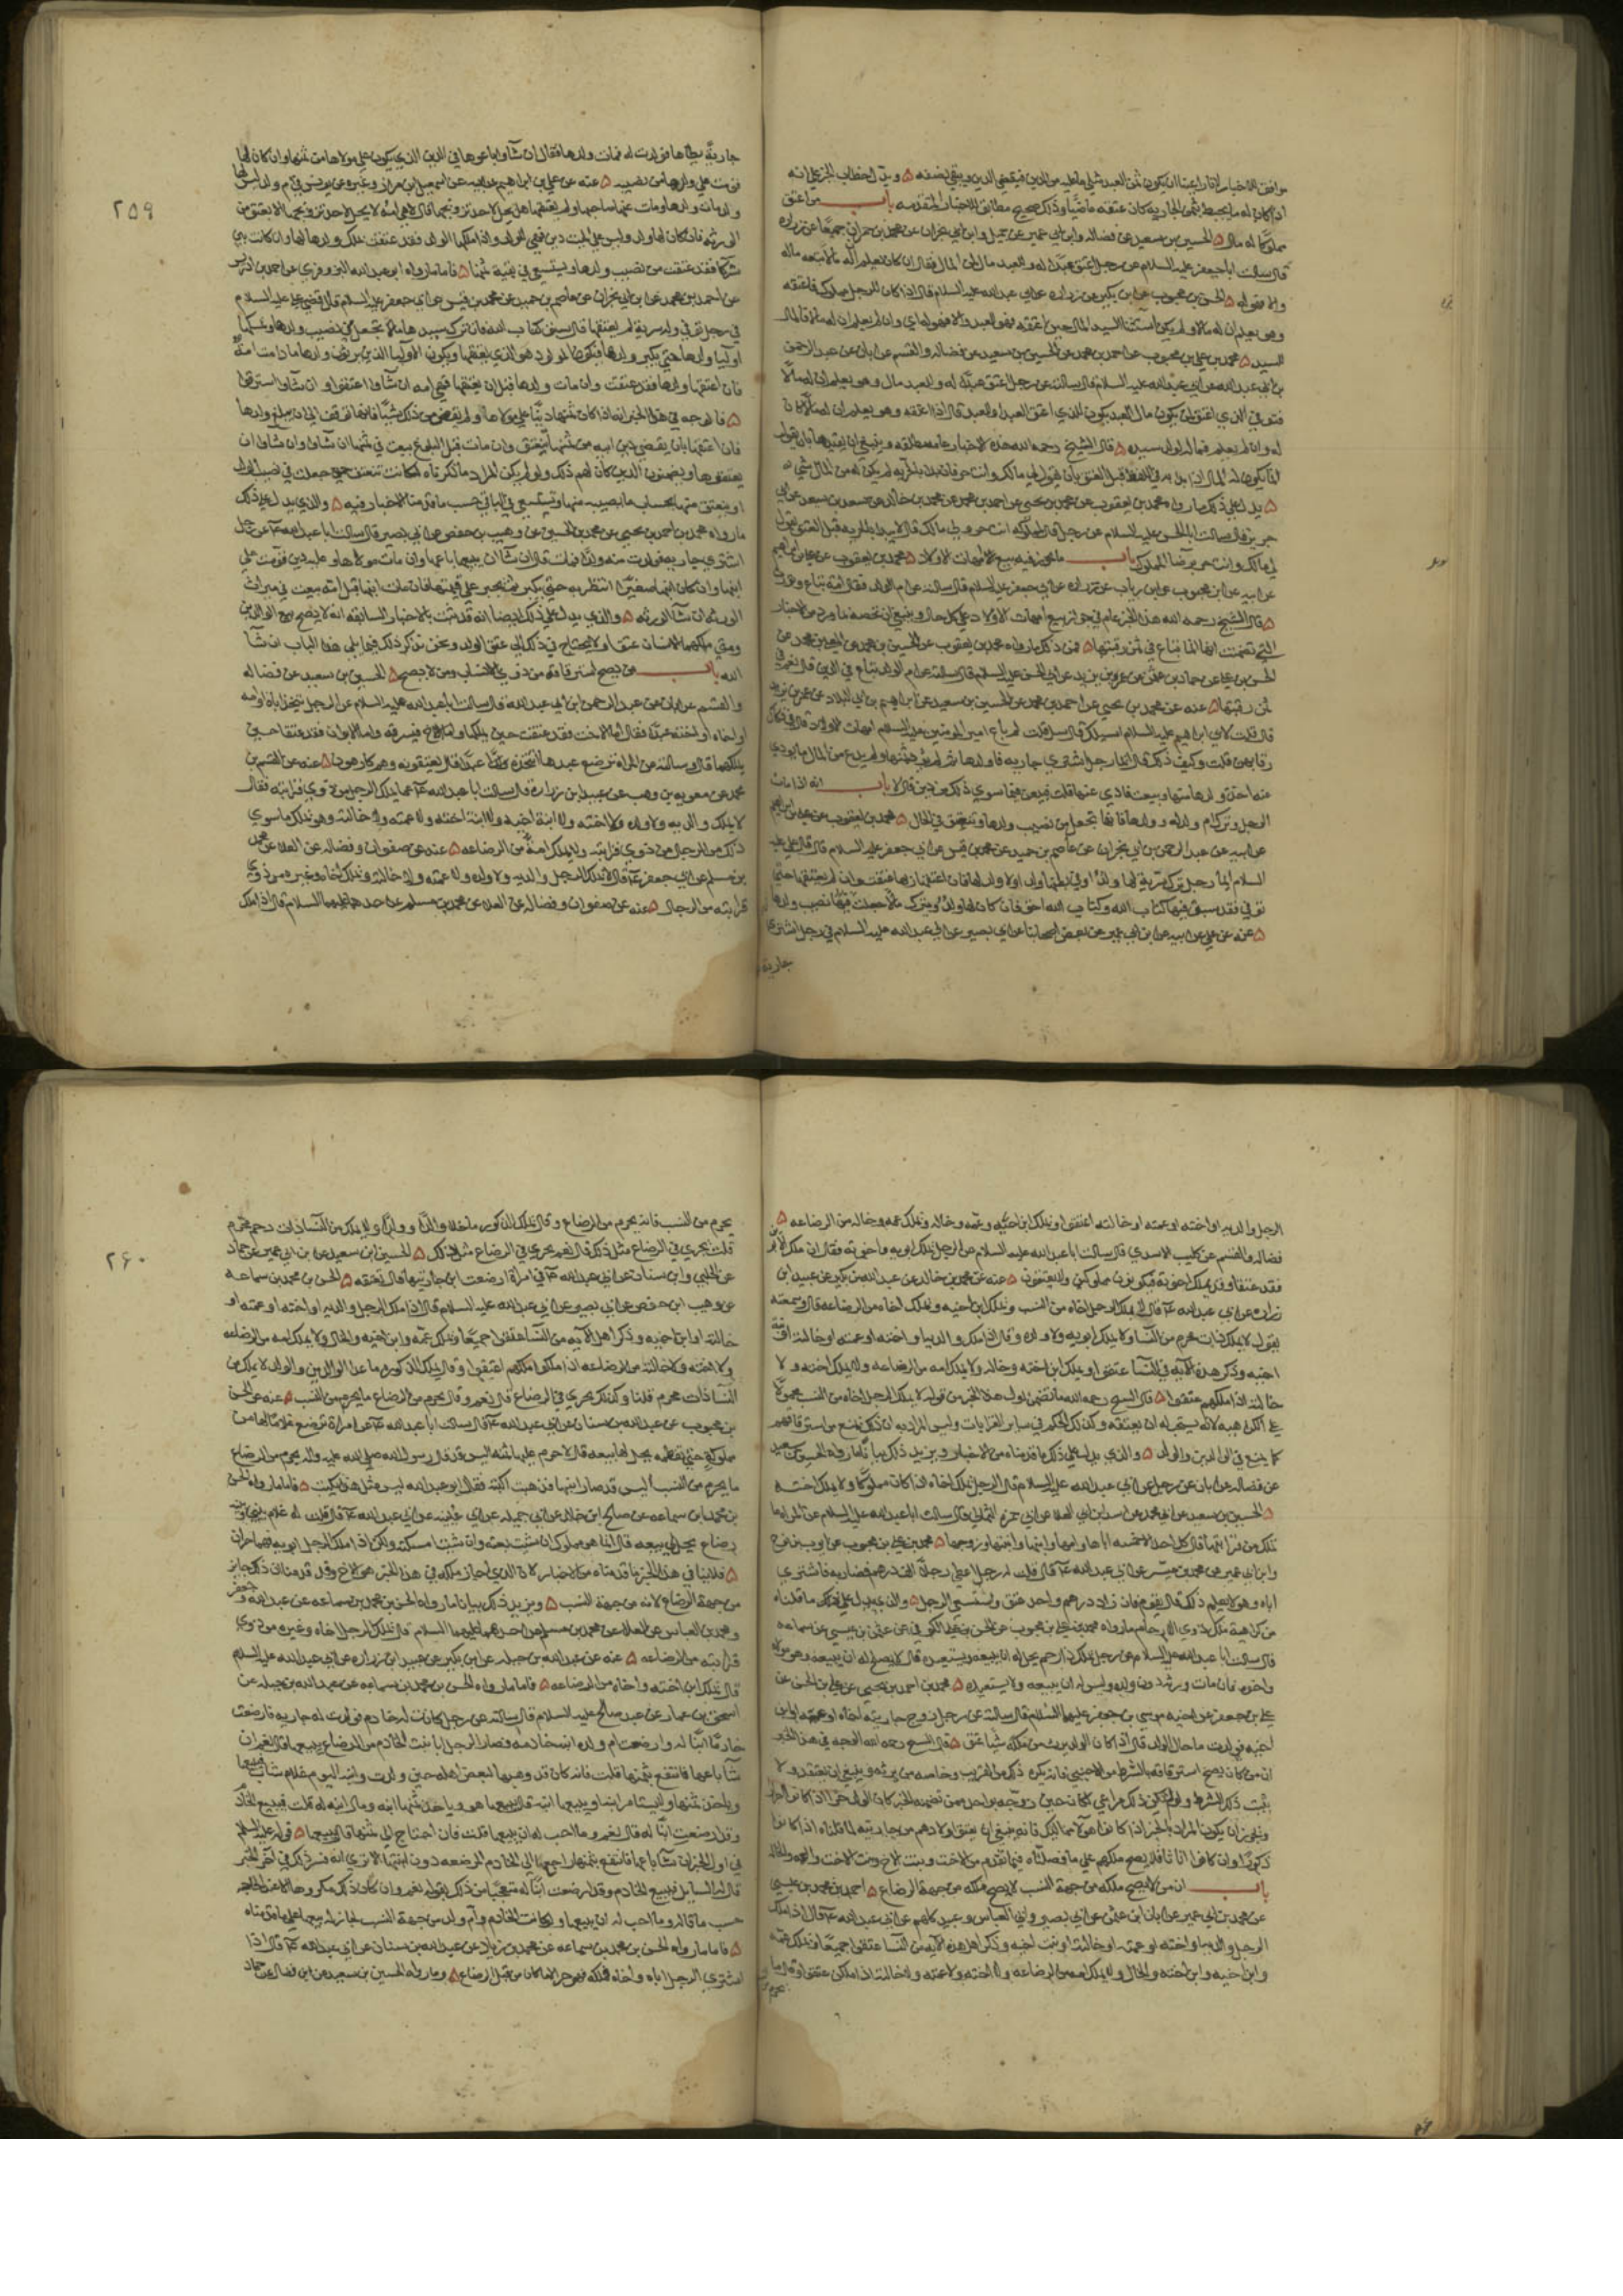 موافق للاخبار لانا راعينا ان يكون ثمن العبد مثلي ما عليه من الدين فيقضي الدين ويبقي نصفه ويدل الخطاب الخبر علي انه
اذا كان له ما يحيط بثمن الجاريه كان عتقه ماضيا وذلك صحيح مطابق للاخبار المتقدمه باب من اعتق
مملوكا له مال الحسين بن سعيد عن فضاله وابن ابي عمير عن جميل وابن ابي نجران عن محمد بن حمران جميعا عن زراره
قال سالت ابا جعفر عليه السلام عن رجل اعتق عبدا له وللعبد مال لمن المال فقال ان كان يعلم ان له مالا تبعه ماله
والا فهو له الحسن بن محبوب عن ابن بكير عن زراره عن ابي عبد الله عليه السلام قال اذا كان للرجل مملوك فاعتقه
وهو يعلم ان له مالا ولم يكن استثنا السيد المال حين اعتقه فهو للعبد
السيد محمد بن علي بن محبوب عن احمد بن محمد عن الحسين بن سعيد عن فضاله والقسم عن ابان عن عبد الرحمن
بن ابي عبد الله عن ابي عبد الله عليه السلام قال سالته عن رجل اعتق عبدا له وللعبد مال وهو يعلم ان له مالا
فتوفي الذي اعتق لمن يكون مال العبد يكون للذي اعتق العبد او للعبد قال اذا اعتقه وهو يعلم ان له مالا
له وان لم يعلم فماله لولد سيده قال الشيخ رحمه الله هذه الاخبار عامه مطلقه وينبغي ان نقيدها بان نقول
يدل علي ذلك ما رواه محمد بن يعقوب عن محمد بن يحيي عن احمد بن محمد عن محمد بن خالد عن سعد بن سعد عن ابي
جرير قال سالت ابا الحسن عليه السلام عن رجل قال لمملوكه انت حر ولي مالك قال لا يبدا بالحريه قبل العتق يقول
لي مالك وانت حر برضا المملوك باب ما يجوز فيه بيع امهات الاولاد محمد بن يعقوب عن علي بن ابراهيم
عن ابيه عن ابن محبوب عن ابن رياب عن زراره عن ابي جعفر عليه السلام قال سالته عن ام الولد فقال امه تباع
قال الشيخ رحمه الله هذا الخبر عام في جواز بيع امهات الاولاد علي كل حال وينبغي ان نخصه بما ورد من الاخبار
التي تضمنت انها انما تباع في ثمن رقبتها فمن ذلك ما رواه محمد بن يعقوب عن الحسين بن محمد عن المعلي بن محمد عن
الحسن بن علي عن حماد بن عثمن عن عمر بن يزيد عن ابي الحسن عليه السلام قال سالته عن ام الولد تباع في الدين قال نعم في
ثمن رقبتها عنه عن محمد بن يحيي عن احمد بن محمد عن الحسين بن سعيد عن ابراهيم بن ابي البلاد عن عمر بن يزيد
قال قلت لابي ابراهيم عليه السلام اسالك قال سل قلت لم باع امير المومنين عليه السلام امهات الاولاد قال في فكاك
رقابهن قلت وكيف ذلك قال ايما رجل اشتري جاريه فاولدها ثم لم يود ثمنها ولم يدع من المال ما يودي
عنه اخذ ولدها منها وبيعت فادي عنها قلت فيبعن فيما سوي ذلك من دين قال لا باب انه اذا مات
الرجل وترك ام ولد له وولدها فانها تجعل من نصيب ولدها وتنعتق في الحال محمد بن يعقوب عن علي بن ابراهيم
عن ابيه عن عبد الرحمن بن ابي نجران عن عاصم بن حميد عن محمد بن قيس عن ابي جعفر عليه السلام قال قال علي عليه
السلام ايما رجل ترك سريه لها ولد او في بطنها ولد او لا ولد لها فان اعتقها ربها عتقت وان لم يعتقها حتي
توفي فقد سبق فيها كتاب الله وكتاب الله احق فان كان لها ولد وترك مالا جعلت في نصيب ولدها
عنه عن علي عن ابيه عن ابن ابي عمير عن بعض اصحابنا عن ابي بصير عن ابي عبد الله عليه السلام في رجل اشتري
جاريه
٢٥٩
جاريه يطاها فولدت له فمات ولدها فقال ان شاوا باعوها في الدين الذي يكون علي مولاها من ثمنها وان كان لها
قومت علي ولدها من نصيبه عنه عن علي بن ابراهيم عن ابيه عن اسمعيل بن مرار وغيره عن يونس في ام ولد ليس لها
ولد مات ولدها ومات عنها صاحبها ولم يعتقها هل يحل لاحد تزويجها قال لا هي امه لا يحل لاحد تزويجها الا بعتق من
الورثه فان كان لها ولد وليس علي الميت دين فهي للولد واذا ملكها الولد فقد عتقت بملك ولدها لها وان كانت بين
شركا فقد عتقت من نصيب ولدها وتستسعي في بقيه ثمنها فاما ما رواه ابو عبد الله البزوفري عن احمد بن ادريس
عن احمد بن محمد عن ابن ابي نجران عن عاصم بن حميد عن محمد بن قيس عن ابي جعفر عليه السلام قال قضي علي عليه السلام
في رجل توفي وله سريه لم يعتقها قال سبق كتاب الله فان ترك سيدها مالا تجعل في نصيب ولدها ويمسكها
اوليا ولدها حتي يكبر ولدها فيكون المولود هو الذي يعتقها ويكون الاوليا الذين يرثون ولدها ما دامت امه
فان اعتقها ولدها فقد عتقت وان مات ولدها قبل ان يعتقها فهي امه ان شاوا اعتقوا وان شاوا استرقوا
فالوجه في هذا الخبر انه اذا كان ثمنها دينا علي مولاها ولم يقض من ذلك شيئا فانها توقف الي ان يبلغ ولدها
فان اعتقها بان يقضي دين ابيه من ثمنها ينعتق وان مات قبل البلوغ بيعت في ثمنها ان شاوا وان شاوا ان
يعتقوها ويضمنون الدين كان لهم ذلك ولو لم يكن المراد ما ذكرناه لكانت تنعتق حين جعلت في نصيب الولد
او ينعتق منها بحساب ما يصيبه منها وتستسعي في الباقي حسب ما قدمنا الاخبار فيه والذي يدل علي ذلك
ما رواه محمد بن احمد بن يحيي عن محمد بن الحسين عن وهيب بن حفص عن ابي بصير قال سالت ابا عبد الله عن رجل
اشتري جاريه فولدت منه ولدا فمات قال ان شا ان يبيعها باعها وان مات مولاها وعليه دين قومت علي
ابنها وان كان ابنها صغيرا انتظر به حتي يكبر ثم يجبر علي قيمتها فان مات ابنها قبل امه بيعت في ميراث
الورثه ان شا الورثه والذي يدل علي ذلك ايضا انه قد ثبت بالاخبار السابقه انه لا يصح بيع الوالدين
ومتي ملكهما الانسان عتقا ولا يحتاج في ذلك الي عتق الولد ونحن نذكر ذلك فيما يلي هذا الباب ان شا
الله باب من يصح استرقاقه من ذوي الانساب ومن لا يصح الحسين بن سعيد عن فضاله
والقسم عن ابان عن عبد الرحمن ابن ابي عبد الله قال سالت ابا عبد الله عليه السلام عن الرجل يتخذ اباه او امه
او اخاه او اخته عبدا فقال اما الاخت فقد عتقت حين يملكها واما الاخ فيسترقه واما الابوان فقد عتقا حين
يملكهما قال وسالته عن المراه ترضع عبدها اتتخذه عبدا قال يعتقونه وهم كارهون عنه عن القسم بن
محمد عن معويه بن وهب عن عبيد بن زراره قال سالت ابا عبد الله عما يملك الرجل من ذوي قرابته فقال
لا يملك والديه ولا ولده ولا اخته ولا ابنة اخيه ولا ابنة اخته ولا عمته ولا خالته وهو يملك ما سوي
ذلك من الرجال من ذوي قرابته ولا يملك امه من الرضاعه عنه عن صفوان وفضاله عن العلا عن محمد
بن مسلم عن ابي جعفر قال لا يملك الرجل والديه ولا ولده ولا عمته ولا خالته ويملك اخاه وغيره من ذوي
قرابته من الرجال عنه عن صفوان وفضاله عن العلا عن محمد بن مسلم عن احدهما عليهما السلام قال اذا ملك
الرجل والديه او اخته او عمته او خالته اعتقوا ويملك ابن اخيه وعمه وخاله ويملك عمه وخاله من الرضاعه
فضاله والقسم عن كليب الاسدي قال سالت ابا عبد الله عليه السلام عن الرجل يملك ابويه واخوته فقال ان ملك الابوين
فقد عتقا وقد يملك اخوته فيكونون مملوكين ولا يعتقون عنه عن محمد بن خالد عن عبد الله بن بكير عن عبيد ابن
زراره عن ابي عبد الله قال لا يملك الرجل اخاه من النسب ويملك ابن اخيه ويملك اخاه من الرضاعه قال وسمعته
يقول لا يملك ذات محرم من النسا ولا يملك ابويه ولا ولده وقال اذا ملك والديه او اخته او عمته او خالته او بنت
اخيه وذكر هذه الايه في النسا عتقوا ويملك ابن اخيه وخاله ولا يملك امه من الرضاعه ولا يملك اخته ولا
خالته اذا ملكهم عتقوا قال الشيخ رحمه الله ما تضمن اول هذا الخبر من قوله لا يملك الرجل اخاه من النسب محمول
علي الكراهيه لانه يستحب له ان يعتقه وكذلك الحكم في ساير القرابات وليس المراد به ان ذلك يمنع من استرقاقهم
كما يمنع في الوالدين والولد والذي يدل علي ذلك ما قدمناه من الاخبار ويزيد ذلك بيانا ما رواه الحسين بن سعيد
عن فضاله عن ابان عن رجل عن ابي عبد الله عليه السلام قال الرجل يملك اخاه اذا كان مملوكا ولا يملك اخته
الحسين بن سعيد عن ابي محمد عن اسد بن ابي العلا عن ابي حمزه الثمالي قال سالت ابا عبد الله عليه السلام عن المراه ما
تملك من قرابتها قال كل احد الا خمسه اباها وامها وابنها وابنتها وزوجها محمد بن علي بن محبوب عن ايوب بن نوح
وابن ابي عمير عن محمد بن ميسر عن ابي عبد الله قال قلت له رجل اعطي رجلا الف درهم مضاربه فاشتري
اباه وهو لا يعلم ذلك قال يقوم فان زاد درهم واحد عتق واستسعي الرجل والذي يدل علي ما قلناه
من كراهيه ملك ذوي الارحام ما رواه محمد بن علي بن محبوب عن الحسن بن علي الكوفي عن عثمن بن عيسي عن سماعه
قال سالت ابا عبد الله عليه السلام عن رجل يملك ذا رحم يحل له ان يبيعه او يستعبده قال لا يصلح له ان يبيعه وهو مولاه
واخوه فان مات ورثه دون ولده وليس له ان يبيعه ولا يستعبده محمد بن احمد بن يحيي عن علي بن الحسن عن
علي بن جعفر عن اخيه موسي بن جعفر عليهما السلام قال سالته عن رجل زوج جاريته اخاه او عمه او ابن
اخيه فولدت ما حال الولد قال اذا كان الولد يرث من ملكه شيئا عتق قال الشيخ رحمه الله الوجه في هذا الخبر
باب ان من لا يصح ملكه من جهة النسب لا يصح ملكه من جهة الرضاع احمد بن محمد بن عيسي
عن محمد بن ابي عمير عن ابان ابن عثمن عن ابي بصير وابي العباس وعبيد كلهم عن ابي عبد الله قال اذا ملك
الرجل والديه او اخته او عمته او خالته او بنت اخيه وذكر اهل هذه الايه من النسا عتقوا جميعا ويملك عمه
وابن اخيه وابن اخته والخال ولا يملك امه من الرضاعه ولا اخته ولا عمته ولا خالته اذا ملكن عتقن وقال ما
يحرم من
٢٦٠
يحرم من النسب فانه يحرم من الرضاع وقال يملك الذكور ما خلا والدا او ولدا ولا يملك من النسا ذات رحم محرم
قلت يجري في الرضاع مثل ذلك قال نعم يجري في الرضاع مثل ذلك الحسين ابن سعيد عن ابن ابي عمير عن حماد
عن الحلبي وابن سنان عن ابي عبد الله في امراة ارضعت ابن جاريتها قال تعتقه الحسن بن محمد بن سماعه
عن وهيب ابن حفص عن ابي بصير عن ابي عبد الله عليه السلام قال اذا ملك الرجل والديه او اخته او عمته او
خالته او ابن اخيه وذكر اهل الايه من النسا عتقوا جميعا ويملك عمه وابن اخيه والخال ولا يملك امه من الرضاعه
ولا اخته ولا خالته من الرضاعه اذا ملكوا ملكهم اعتقوا وقال يملك الذكور ما عدا الوالدين والولد ولا يملك من
النسا ذات محرم قلنا وكذلك يجري في الرضاع قال نعم وقال يحرم من الرضاع ما يحرم من النسب عنه عن الحسن
بن محبوب عن عبد الله بن سنان عن ابي عبد الله قال سالت ابا عبد الله عن امراة ترضع غلاما لها من
مملوكة حتي تفطمه يحل لها بيعه قال لا حرم عليها ثمنه اليس قد قال رسول الله صلي الله عليه واله يحرم من الرضاع
ما يحرم من النسب اليس قد صار ابنها فذهبت اكتبه فقال ابو عبد الله ليس مثل هذا يكتب فاما ما رواه الحسن
بن محمد ابن سماعه عن صالح ابن خالد عن ابي جميله عن ابي عيينه عن ابي عبد الله قال قلت له غلام بيني وبينه
رضاع يحل لي بيعه قال انما هو مملوك ان شيت بعته وان شيت امسكته ولكن اذا ملك الرجل ابويه فهما حران
فلا ينافي هذا الخبر ما قدمناه من الاخبار لان الذي اجاز ملكه في هذا الخبر هو الاخ وقد قدمنا ان ذلك جايز
من جهة الرضاع لانه من جهة النسب ويزيد ذلك بيانا ما رواه الحسن بن محمد بن سماعه عن عبد الله وجعفر
ومحمد بن العباس عن العلا عن محمد بن مسلم عن احدهما عليهما السلام قال يملك الرجل اخاه وغيره من ذوي
قرابته من الرضاعه عنه عن عبد الله بن جبله عن ابن بكير عن عبيد ابن زراره عن ابي عبد الله عليه السلام
قال يملك ابن اخته واخاه من الرضاعه فاما ما رواه الحسن بن محمد بن سماعه عن عبد الله بن جبله عن
اسحق بن عمار عن عبد صالح عليه السلام قال سالته عن رجل كانت له خادم فولدت له جاريه فارضعت
خادمه ابنا له وارضعت ام ولده ابنة خادمه فصار الرجل ابا بنت الخادم من الرضاع يبيعها قال نعم ان
شا باعها فانتفع بثمنها قلت فانه كان قد وهبها لبعض اهله حين ولدت وابنه اليوم غلام شاب فيبيعها
وياخذ ثمنها ولا يستامر ابنه او يبيعها ابنه قال يبيعها هو وياخذ ثمنها ابنه ومال ابنه له قلت فيبيع الخادم
وقد ارضعت ابنا له قال نعم وما احب له ان يبيعها قلت فان احتاج الي ثمنها قال يبيعها قوله عليه السلم
في اول الخبر ان شا باعها فانتفع بثمنها راجع الي الخادم المرضعه دون ابنتها الا تري انه فسر ذلك في اخر الخبر
قال له السايل فيبيع الخادم وقد ارضعت ابنا له متعجبا من ذلك فقال له نعم وان كان ذلك مكروها الا عند الحاجه
حسب ما قاله وما احب له ان يبيعها ولو كانت الخادم ام ولد من جهة النسب لجاز له بيعها علي ما قدمناه
فاما ما رواه الحسن بن محمد بن سماعه عن محمد بن زياد عن عبد الله بن سنان عن ابي عبد الله قال اذا
اشتري الرجل اباه او اخاه فملكه فهو حر الا ما كان من قبل الرضاع وما رواه الحسين بن سعيد عن ابن فضال عن حماد